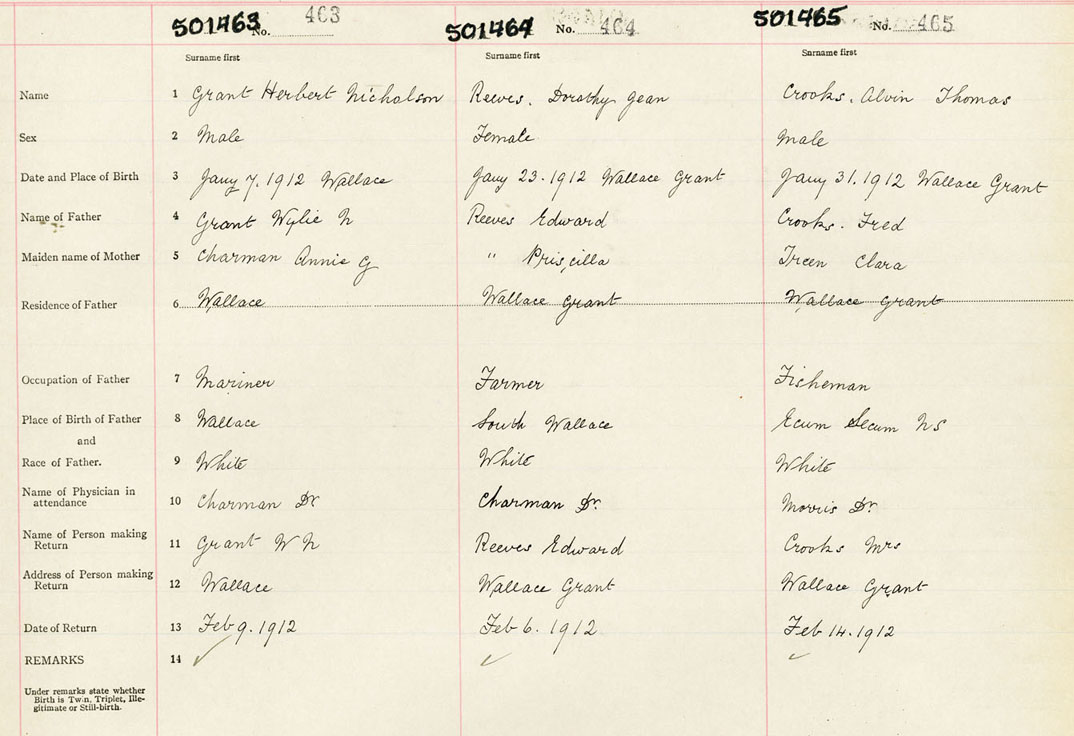 501463 No. 463 501464 No. 464 501465 No. 465
Surname first Surname first Surname first
Name 1 Grant Herbert Nicholson Reeves. Dorothy Jean Crooks. Alvin Thomas
Sex 2 Male Female Male
Date and Place of Birth 3 Jany 7. 1912 Wallace Jany 23. 1912 Wallace Grant Jany 31. 1912 Wallace Grant
Name of Father 4 Grant Wylie N Reeves Edward Crooks. Fred
Maiden name of Mother 5 Charman Annie G " Priscilla Treen Clara
Residence of Father 6 Wallace Wallace Grant Wallace Grant
Occupation of Father 7 Mariner Farmer Fisheman
Place of Birth of Father 8 Wallace South Wallace Ecum Secum NS
and
Race of Father. 9 White White White
Name of Physician in
attendance 10 Charman Dr Charman Dr. Morris Dr.
Name of Person making
Return 11 Grant W N Reeves Edward Crooks Mrs
Address of Person making
Return 12 Wallace Wallace Grant Wallace Grant
Date of Return 13 Feb 9. 1912 Feb 6. 1912 Feb 14. 1912
REMARKS 14 ✓ ✓ ✓
Under remarks state whether
Birth is Twin, Triplet, Ille-
gitimate or Still-birth.